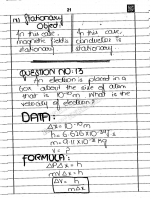 21
Stationary
Object
In this case,
magnetic field is
stationary
In this case,
conductor is
stationary
QUESTION NO: 13
An electron is placed in a
box about the size of atom
that is 10⁻¹⁰m. What is the
velocity of electron?
DATA:
Δx = 10⁻¹⁰m
h = 6.626X10⁻³⁴Js
m = 9.11X10⁻³¹Kg
V = ?
FORMULA:
ΔPΔx = h
mΔvΔx = h
ΔV = h
mΔx